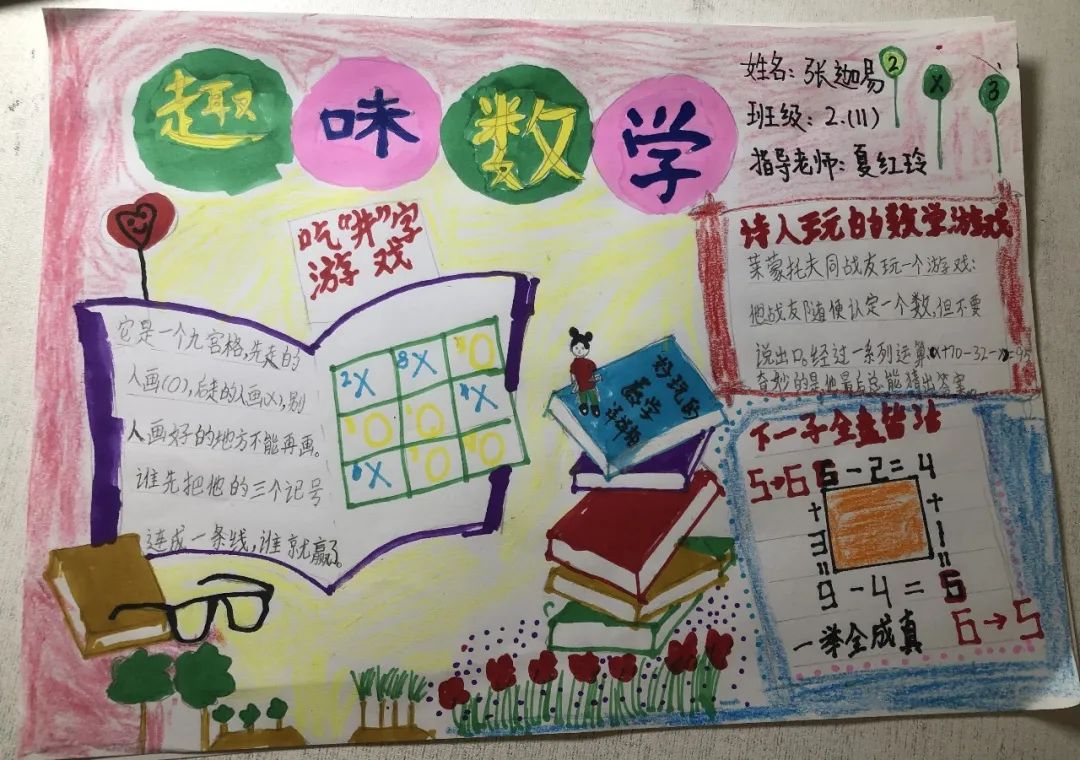 趣味数学
姓名：张迦易
班级：2.(11)
指导老师：夏红玲
2
×
3
吃“井”字
游戏
它是一个九宫格，先走的
人画(O)，后走的人画(X)，别
人画好的地方不能再画。
谁先把他的三个记号
连成一条线，谁就赢了。
2X 8X O
O O 4X
6X O O
好玩的
数学
诗人玩的数学游戏
莱蒙托夫同战友玩一个游戏：
他战友随便认定一个数，但不要
说出口。经过一系列运算：
奇妙的是他最后总能猜出答案。
下一子全盘皆活
5→6
6-2=4
+ +
3 1
= =
9-4=5
一举全成真
6→5